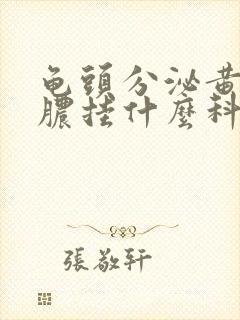 龟頭分泌黄
膿挂什麼科
張敬轩